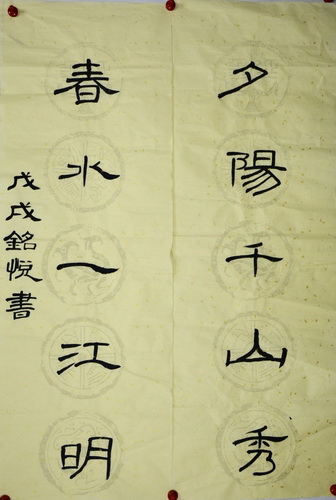 夕陽千山秀
春水一江明
戊戌銘悅書